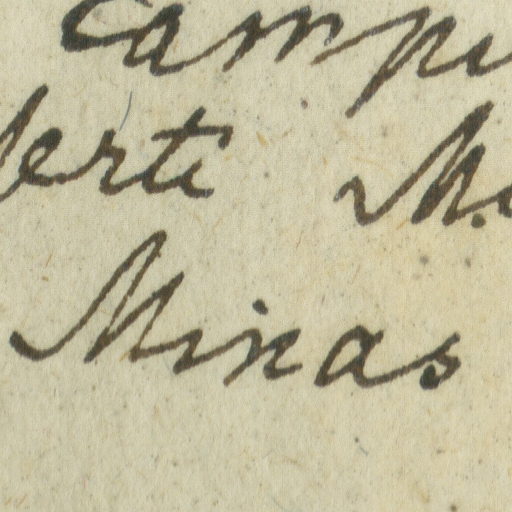 Campi
erte M.
Minas